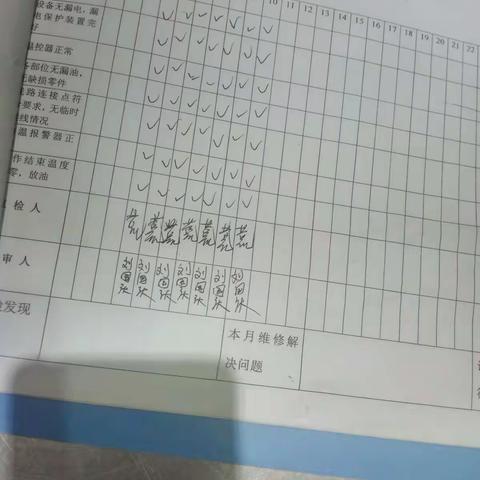 设备无漏电,漏
电保护装置完
好
10 11 12 13 14 15 16 17 18 19 20 21 22
温控器正常
各部位无漏油,
无缺损零件
线路连接点符
合要求,无临时
线情况
温报警器正
作结束温度
零,放油
检人
审人
刘国张 刘国张 刘国张 刘国张 刘国张 刘国张 刘国张
发现
本月维修解
决问题